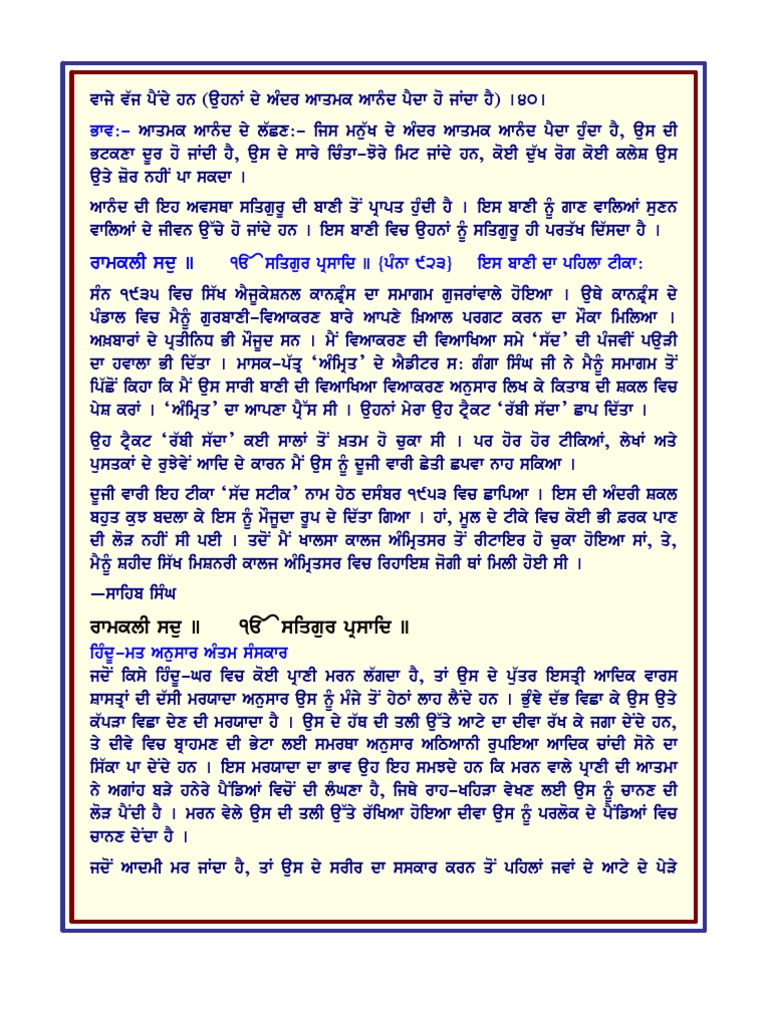 ਵਾਜੇ ਵੱਜ ਪੈਂਦੇ ਹਨ (ਉਹਨਾਂ ਦੇ ਅੰਦਰ ਆਤਮਕ ਆਨੰਦ ਪੈਦਾ ਹੋ ਜਾਂਦਾ ਹੈ) ।੪੦।
ਭਾਵ:- ਆਤਮਕ ਆਨੰਦ ਦੇ ਲੱਛਣ:- ਜਿਸ ਮਨੁੱਖ ਦੇ ਅੰਦਰ ਆਤਮਕ ਆਨੰਦ ਪੈਦਾ ਹੁੰਦਾ ਹੈ, ਉਸ ਦੀ
ਭਟਕਣਾ ਦੂਰ ਹੋ ਜਾਂਦੀ ਹੈ, ਉਸ ਦੇ ਸਾਰੇ ਚਿੰਤਾ-ਝੋਰੇ ਮਿਟ ਜਾਂਦੇ ਹਨ, ਕੋਈ ਦੁੱਖ ਰੋਗ ਕੋਈ ਕਲੇਸ਼ ਉਸ
ਉਤੇ ਜ਼ੋਰ ਨਹੀਂ ਪਾ ਸਕਦਾ ।
ਆਨੰਦ ਦੀ ਇਹ ਅਵਸਥਾ ਸਤਿਗੁਰੂ ਦੀ ਬਾਣੀ ਤੋਂ ਪ੍ਰਾਪਤ ਹੁੰਦੀ ਹੈ । ਇਸ ਬਾਣੀ ਨੂੰ ਗਾਣ ਵਾਲਿਆਂ ਸੁਣਨ
ਵਾਲਿਆਂ ਦੇ ਜੀਵਨ ਉੱਚੇ ਹੋ ਜਾਂਦੇ ਹਨ । ਇਸ ਬਾਣੀ ਵਿਚ ਉਹਨਾਂ ਨੂੰ ਸਤਿਗੁਰੂ ਹੀ ਪਰਤੱਖ ਦਿੱਸਦਾ ਹੈ ।
ਰਾਮਕਲੀ ਸਦੁ ॥ ੴ ਸਤਿਗੁਰ ਪ੍ਰਸਾਦਿ ॥ {ਪੰਨਾ ੯੨੩} ਇਸ ਬਾਣੀ ਦਾ ਪਹਿਲਾ ਟੀਕਾ:
ਸੰਨ ੧੯੩੫ ਵਿਚ ਸਿੱਖ ਐਜੂਕੇਸ਼ਨਲ ਕਾਨਫ਼੍ਰੰਸ ਦਾ ਸਮਾਗਮ ਗੁਜਰਾਂਵਾਲੇ ਹੋਇਆ । ਉਥੇ ਕਾਨਫ਼੍ਰੰਸ ਦੇ
ਪੰਡਾਲ ਵਿਚ ਮੈਨੂੰ ਗੁਰਬਾਣੀ-ਵਿਆਕਰਣ ਬਾਰੇ ਆਪਣੇ ਖ਼ਿਆਲ ਪਰਗਟ ਕਰਨ ਦਾ ਮੌਕਾ ਮਿਲਿਆ ।
ਅਖ਼ਬਾਰਾਂ ਦੇ ਪ੍ਰਤੀਨਿਧ ਭੀ ਮੌਜੂਦ ਸਨ । ਮੈਂ ਵਿਆਕਰਣ ਦੀ ਵਿਆਖਿਆ ਸਮੇ ‘ਸੱਦ’ ਦੀ ਪੰਜਵੀਂ ਪਉੜੀ
ਦਾ ਹਵਾਲਾ ਭੀ ਦਿੱਤਾ । ਮਾਸਕ-ਪੱਤ੍ਰ ‘ਅੰਮ੍ਰਿਤ’ ਦੇ ਐਡੀਟਰ ਸ: ਗੰਗਾ ਸਿੰਘ ਜੀ ਨੇ ਮੈਨੂੰ ਸਮਾਗਮ ਤੋਂ
ਪਿੱਛੋਂ ਕਿਹਾ ਕਿ ਮੈਂ ਉਸ ਸਾਰੀ ਬਾਣੀ ਦੀ ਵਿਆਖਿਆ ਵਿਆਕਰਣ ਅਨੁਸਾਰ ਲਿਖ ਕੇ ਕਿਤਾਬ ਦੀ ਸ਼ਕਲ ਵਿਚ
ਪੇਸ਼ ਕਰਾਂ । ‘ਅੰਮ੍ਰਿਤ’ ਦਾ ਆਪਣਾ ਪ੍ਰੈੱਸ ਸੀ । ਉਹਨਾਂ ਮੇਰਾ ਉਹ ਟ੍ਰੈਕਟ ‘ਰੱਬੀ ਸੱਦਾ’ ਛਾਪ ਦਿੱਤਾ ।
ਉਹ ਟ੍ਰੈਕਟ ‘ਰੱਬੀ ਸੱਦਾ’ ਕਈ ਸਾਲਾਂ ਤੋਂ ਖ਼ਤਮ ਹੋ ਚੁਕਾ ਸੀ । ਪਰ ਹੋਰ ਹੋਰ ਟੀਕਿਆਂ, ਲੇਖਾਂ ਅਤੇ
ਪੁਸਤਕਾਂ ਦੇ ਰੁਝੇਵੇਂ ਆਦਿ ਦੇ ਕਾਰਨ ਮੈਂ ਉਸ ਨੂੰ ਦੂਜੀ ਵਾਰੀ ਛੇਤੀ ਛਪਵਾ ਨਾਹ ਸਕਿਆ ।
ਦੂਜੀ ਵਾਰੀ ਇਹ ਟੀਕਾ ‘ਸੱਦ ਸਟੀਕ’ ਨਾਮ ਹੇਠ ਦਸੰਬਰ ੧੯੫੩ ਵਿਚ ਛਾਪਿਆ । ਇਸ ਦੀ ਅੰਦਰੀ ਸ਼ਕਲ
ਬਹੁਤ ਕੁਝ ਬਦਲਾ ਕੇ ਇਸ ਨੂੰ ਮੌਜੂਦਾ ਰੂਪ ਦੇ ਦਿੱਤਾ ਗਿਆ । ਹਾਂ, ਮੂਲ ਦੇ ਟੀਕੇ ਵਿਚ ਕੋਈ ਭੀ ਫ਼ਰਕ ਪਾਣ
ਦੀ ਲੋੜ ਨਹੀਂ ਸੀ ਪਈ । ਤਦੋਂ ਮੈਂ ਖਾਲਸਾ ਕਾਲਜ ਅੰਮ੍ਰਿਤਸਰ ਤੋਂ ਰੀਟਾਇਰ ਹੋ ਚੁਕਾ ਹੋਇਆ ਸਾਂ, ਤੇ,
ਮੈਨੂੰ ਸ਼ਹੀਦ ਸਿੱਖ ਮਿਸ਼ਨਰੀ ਕਾਲਜ ਅੰਮ੍ਰਿਤਸਰ ਵਿਚ ਰਿਹਾਇਸ਼ ਜੋਗੀ ਥਾਂ ਮਿਲੀ ਹੋਈ ਸੀ ।
—ਸਾਹਿਬ ਸਿੰਘ
ਰਾਮਕਲੀ ਸਦੁ ॥ ੴ ਸਤਿਗੁਰ ਪ੍ਰਸਾਦਿ ॥
ਹਿੰਦੂ-ਮਤ ਅਨੁਸਾਰ ਅੰਤਮ ਸੰਸਕਾਰ
ਜਦੋਂ ਕਿਸੇ ਹਿੰਦੂ-ਘਰ ਵਿਚ ਕੋਈ ਪ੍ਰਾਣੀ ਮਰਨ ਲੱਗਦਾ ਹੈ, ਤਾਂ ਉਸ ਦੇ ਪੁੱਤਰ ਇਸਤ੍ਰੀ ਆਦਿਕ ਵਾਰਸ
ਸ਼ਾਸਤ੍ਰਾਂ ਦੀ ਦੱਸੀ ਮਰਯਾਦਾ ਅਨੁਸਾਰ ਉਸ ਨੂੰ ਮੰਜੇ ਤੋਂ ਹੇਠਾਂ ਲਾਹ ਲੈਂਦੇ ਹਨ । ਭੁੰਞੇ ਦੱਭ ਵਿਛਾ ਕੇ ਉਸ ਉਤੇ
ਕੱਪੜਾ ਵਿਛਾ ਦੇਣ ਦੀ ਮਰਯਾਦਾ ਹੈ । ਉਸ ਦੇ ਹੱਥ ਦੀ ਤਲੀ ਉੱਤੇ ਆਟੇ ਦਾ ਦੀਵਾ ਰੱਖ ਕੇ ਜਗਾ ਦੇਂਦੇ ਹਨ,
ਤੇ ਦੀਵੇ ਵਿਚ ਬ੍ਰਾਹਮਣ ਦੀ ਭੇਟਾ ਲਈ ਸਮਰਥਾ ਅਨੁਸਾਰ ਅਠਿਆਨੀ ਰੁਪਇਆ ਆਦਿਕ ਚਾਂਦੀ ਸੋਨੇ ਦਾ
ਸਿੱਕਾ ਪਾ ਦੇਂਦੇ ਹਨ । ਇਸ ਮਰਯਾਦਾ ਦਾ ਭਾਵ ਉਹ ਇਹ ਸਮਝਦੇ ਹਨ ਕਿ ਮਰਨ ਵਾਲੇ ਪ੍ਰਾਣੀ ਦੀ ਆਤਮਾ
ਨੇ ਅਗਾਂਹ ਬੜੇ ਹਨੇਰੇ ਪੈਂਡਿਆਂ ਵਿਚੋਂ ਦੀ ਲੰਘਣਾ ਹੈ, ਜਿਥੇ ਰਾਹ-ਖਹਿੜਾ ਵੇਖਣ ਲਈ ਉਸ ਨੂੰ ਚਾਨਣ ਦੀ
ਲੋੜ ਪੈਂਦੀ ਹੈ । ਮਰਨ ਵੇਲੇ ਉਸ ਦੀ ਤਲੀ ਉੱਤੇ ਰੱਖਿਆ ਹੋਇਆ ਦੀਵਾ ਉਸ ਨੂੰ ਪਰਲੋਕ ਦੇ ਪੈਂਡਿਆਂ ਵਿਚ
ਚਾਨਣ ਦੇਂਦਾ ਹੈ ।
ਜਦੋਂ ਆਦਮੀ ਮਰ ਜਾਂਦਾ ਹੈ, ਤਾਂ ਉਸ ਦੇ ਸਰੀਰ ਦਾ ਸਸਕਾਰ ਕਰਨ ਤੋਂ ਪਹਿਲਾਂ ਜਵਾਂ ਦੇ ਆਟੇ ਦੇ ਪੇੜੇ